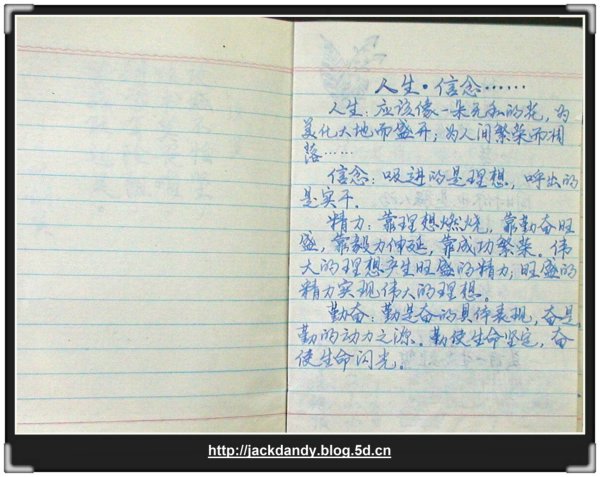 人生·信念……
人生：应该像一朵无私的花，为
美化大地而盛开；为人间繁荣而凋
落……
信念：吸进的是理想，呼出的
是实干。
精力：靠理想燃烧，靠勤奋旺
盛，靠毅力伸延，靠成功繁荣。伟
大的理想产生旺盛的精力；旺盛的
精力实现伟大的理想。
勤奋：勤是奋的具体表现，奋是
勤的动力之源。勤使生命坚定，奋
使生命闪光。
http://jackdandy.blog.5d.cn